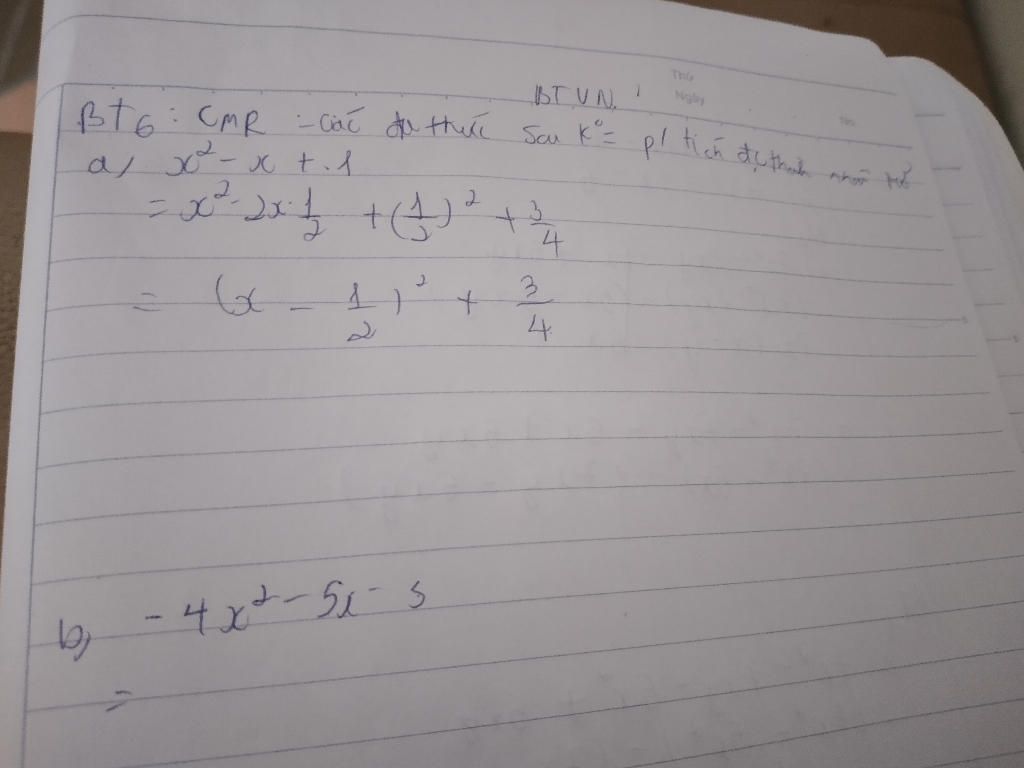 Thứ
Ngày
No.
BTVN
BT6 : CMR : các đa thức sau K⁰= p/ tích đc thành nhân tử
a, x² - x + 1
= x² - 2x·1/2 + (1/2)² + 3/4
= (x - 1/2)² + 3/4
b, -4x² - 5x -
=